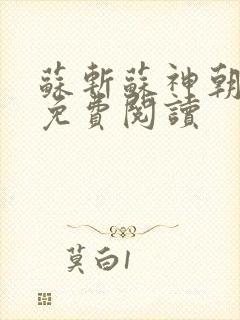 蘇斬蘇神朝
免費閱讀
莫白1